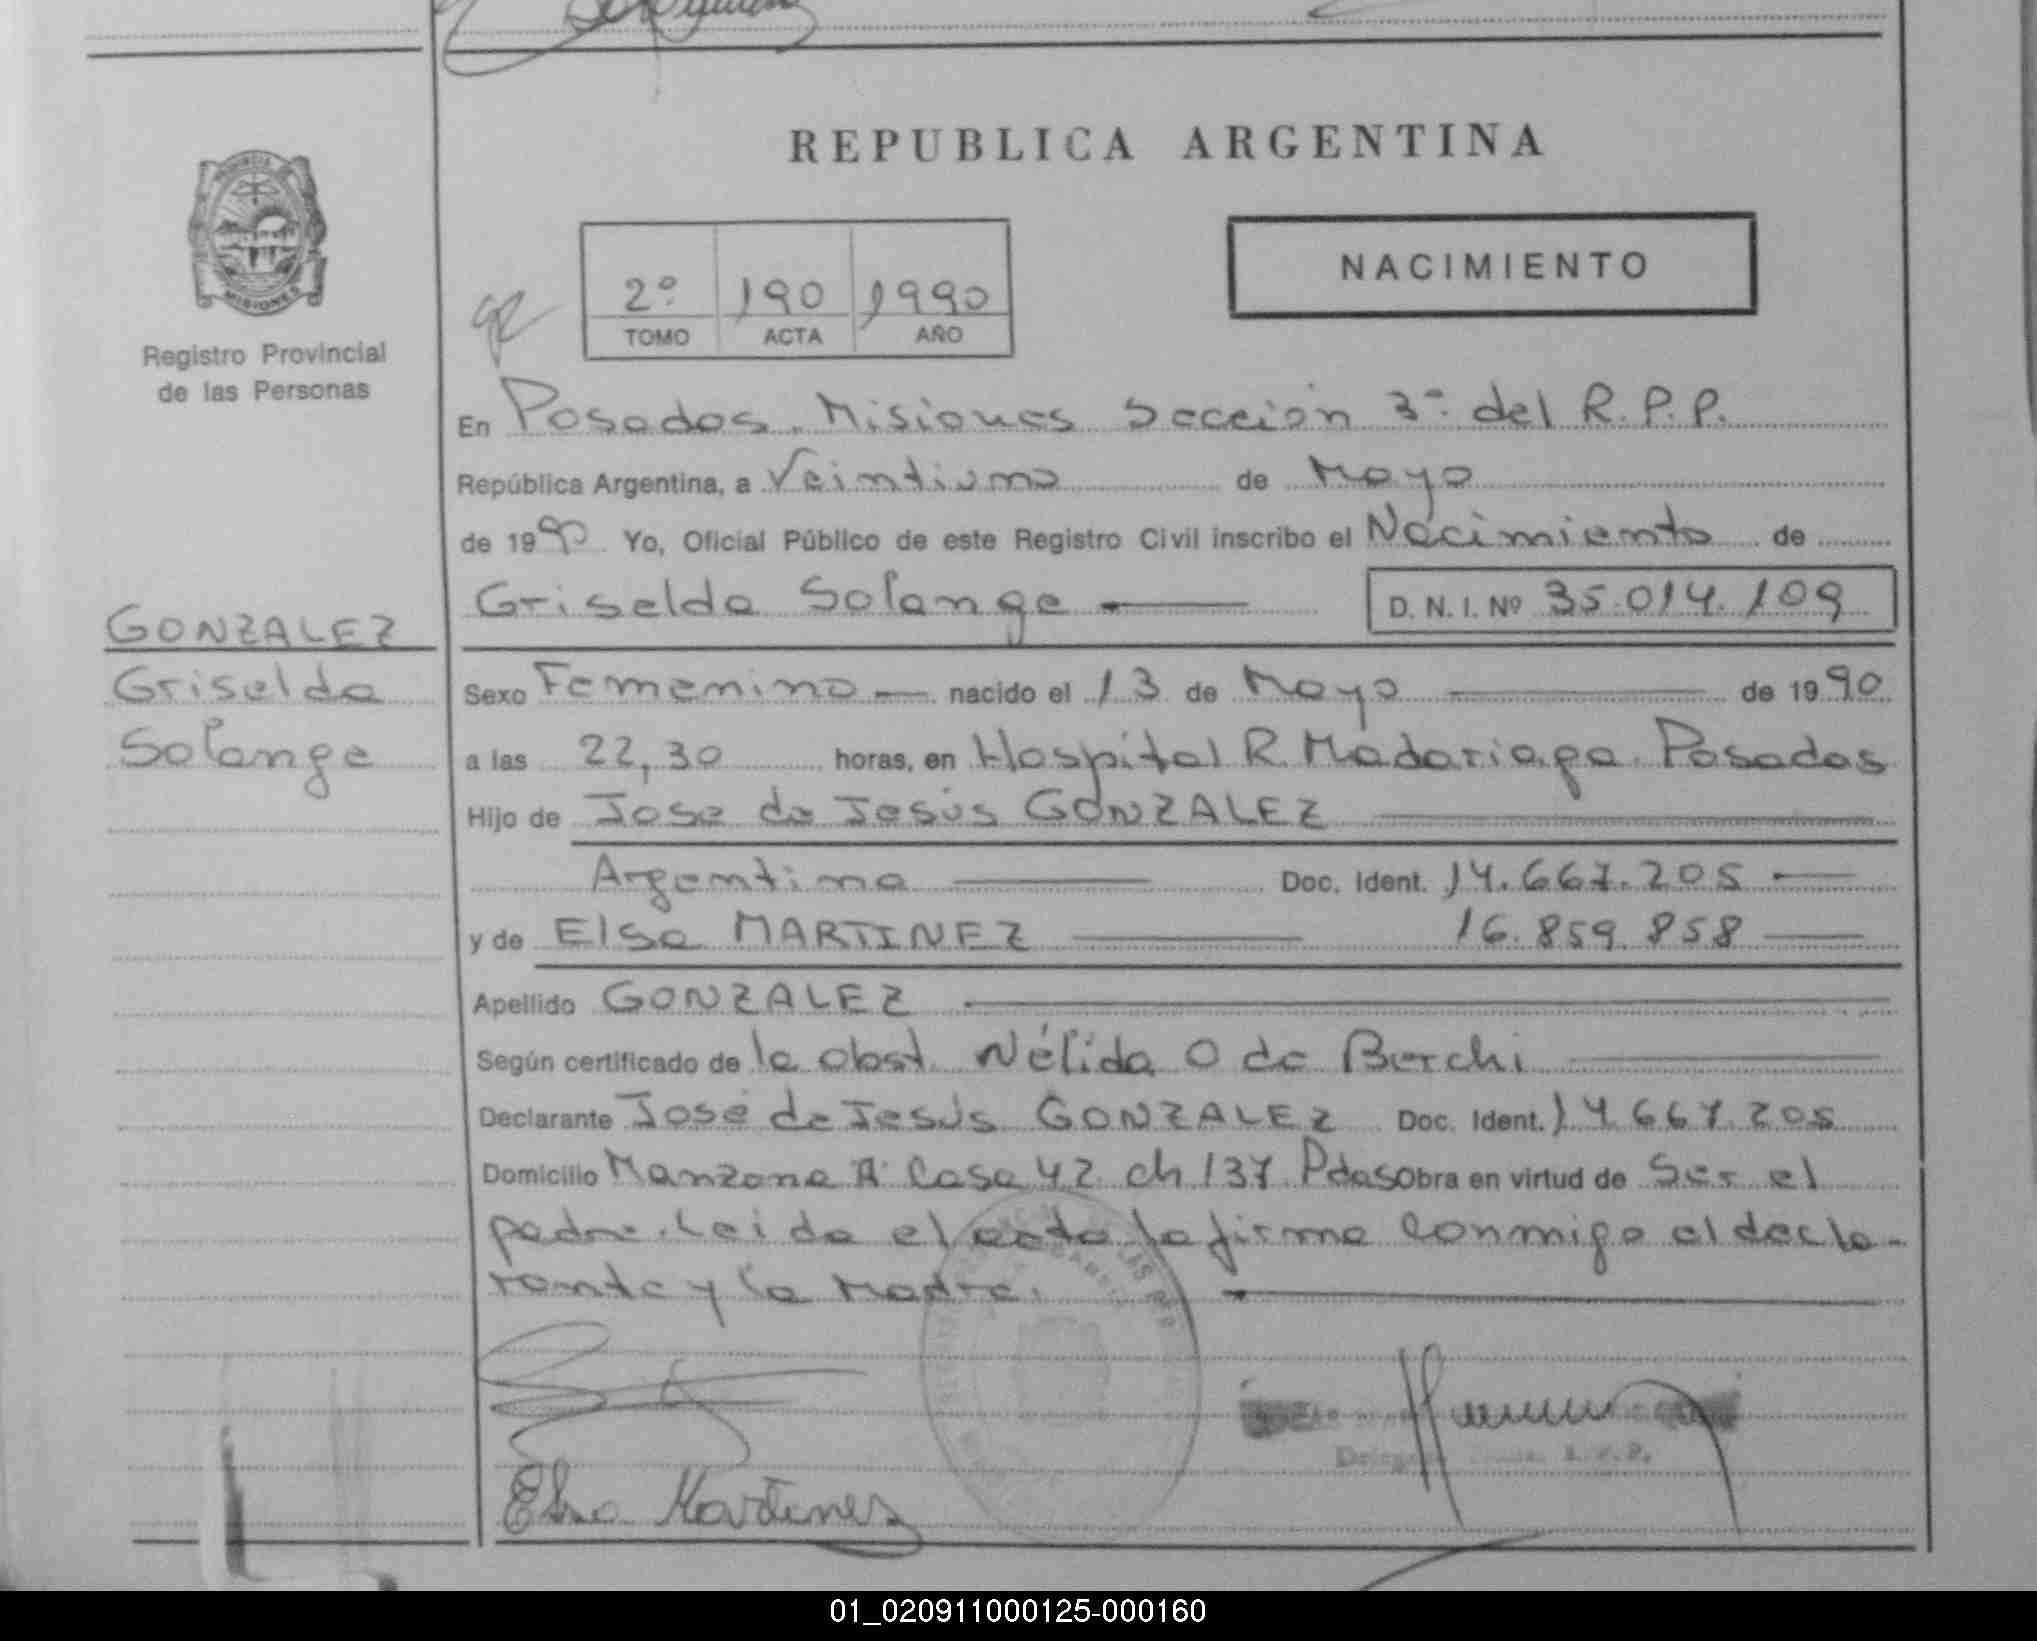 REPUBLICA ARGENTINA
PROVINCIA
MISIONES
Registro Provincial
de las Personas
2º 190 1990
TOMO ACTA AÑO
NACIMIENTO
En Posadas. Misiones Sección 3ª del R.P.P.
República Argentina, a Veintiuno de Mayo
de 1990 Yo, Oficial Público de este Registro Civil inscribo el Nacimiento de
Griselda Solange — D. N. I. Nº 35.014.109
GONZALEZ
Griselda
Solange
Sexo Femenino — nacido el 13 de Mayo — de 1990
a las 22,30 horas, en Hospital R. Madariaga. Posadas
Hijo de José de Jesús GONZALEZ —
Argentina — Doc. Ident. 14.667.205 —
y de Elsa MARTINEZ — 16.859.858 —
Apellido GONZALEZ —
Según certificado de la obst. Nélida O de Berchi —
Declarante José de Jesús GONZALEZ Doc. Ident. 14.667.205
Domicilio Manzana A Casa 42 ch 137 Pdas Obra en virtud de Ser el
padre. Leida el acta la firma conmigo el decla-
rante y la Madre. —
Elsa Martinez
01_020911000125-000160